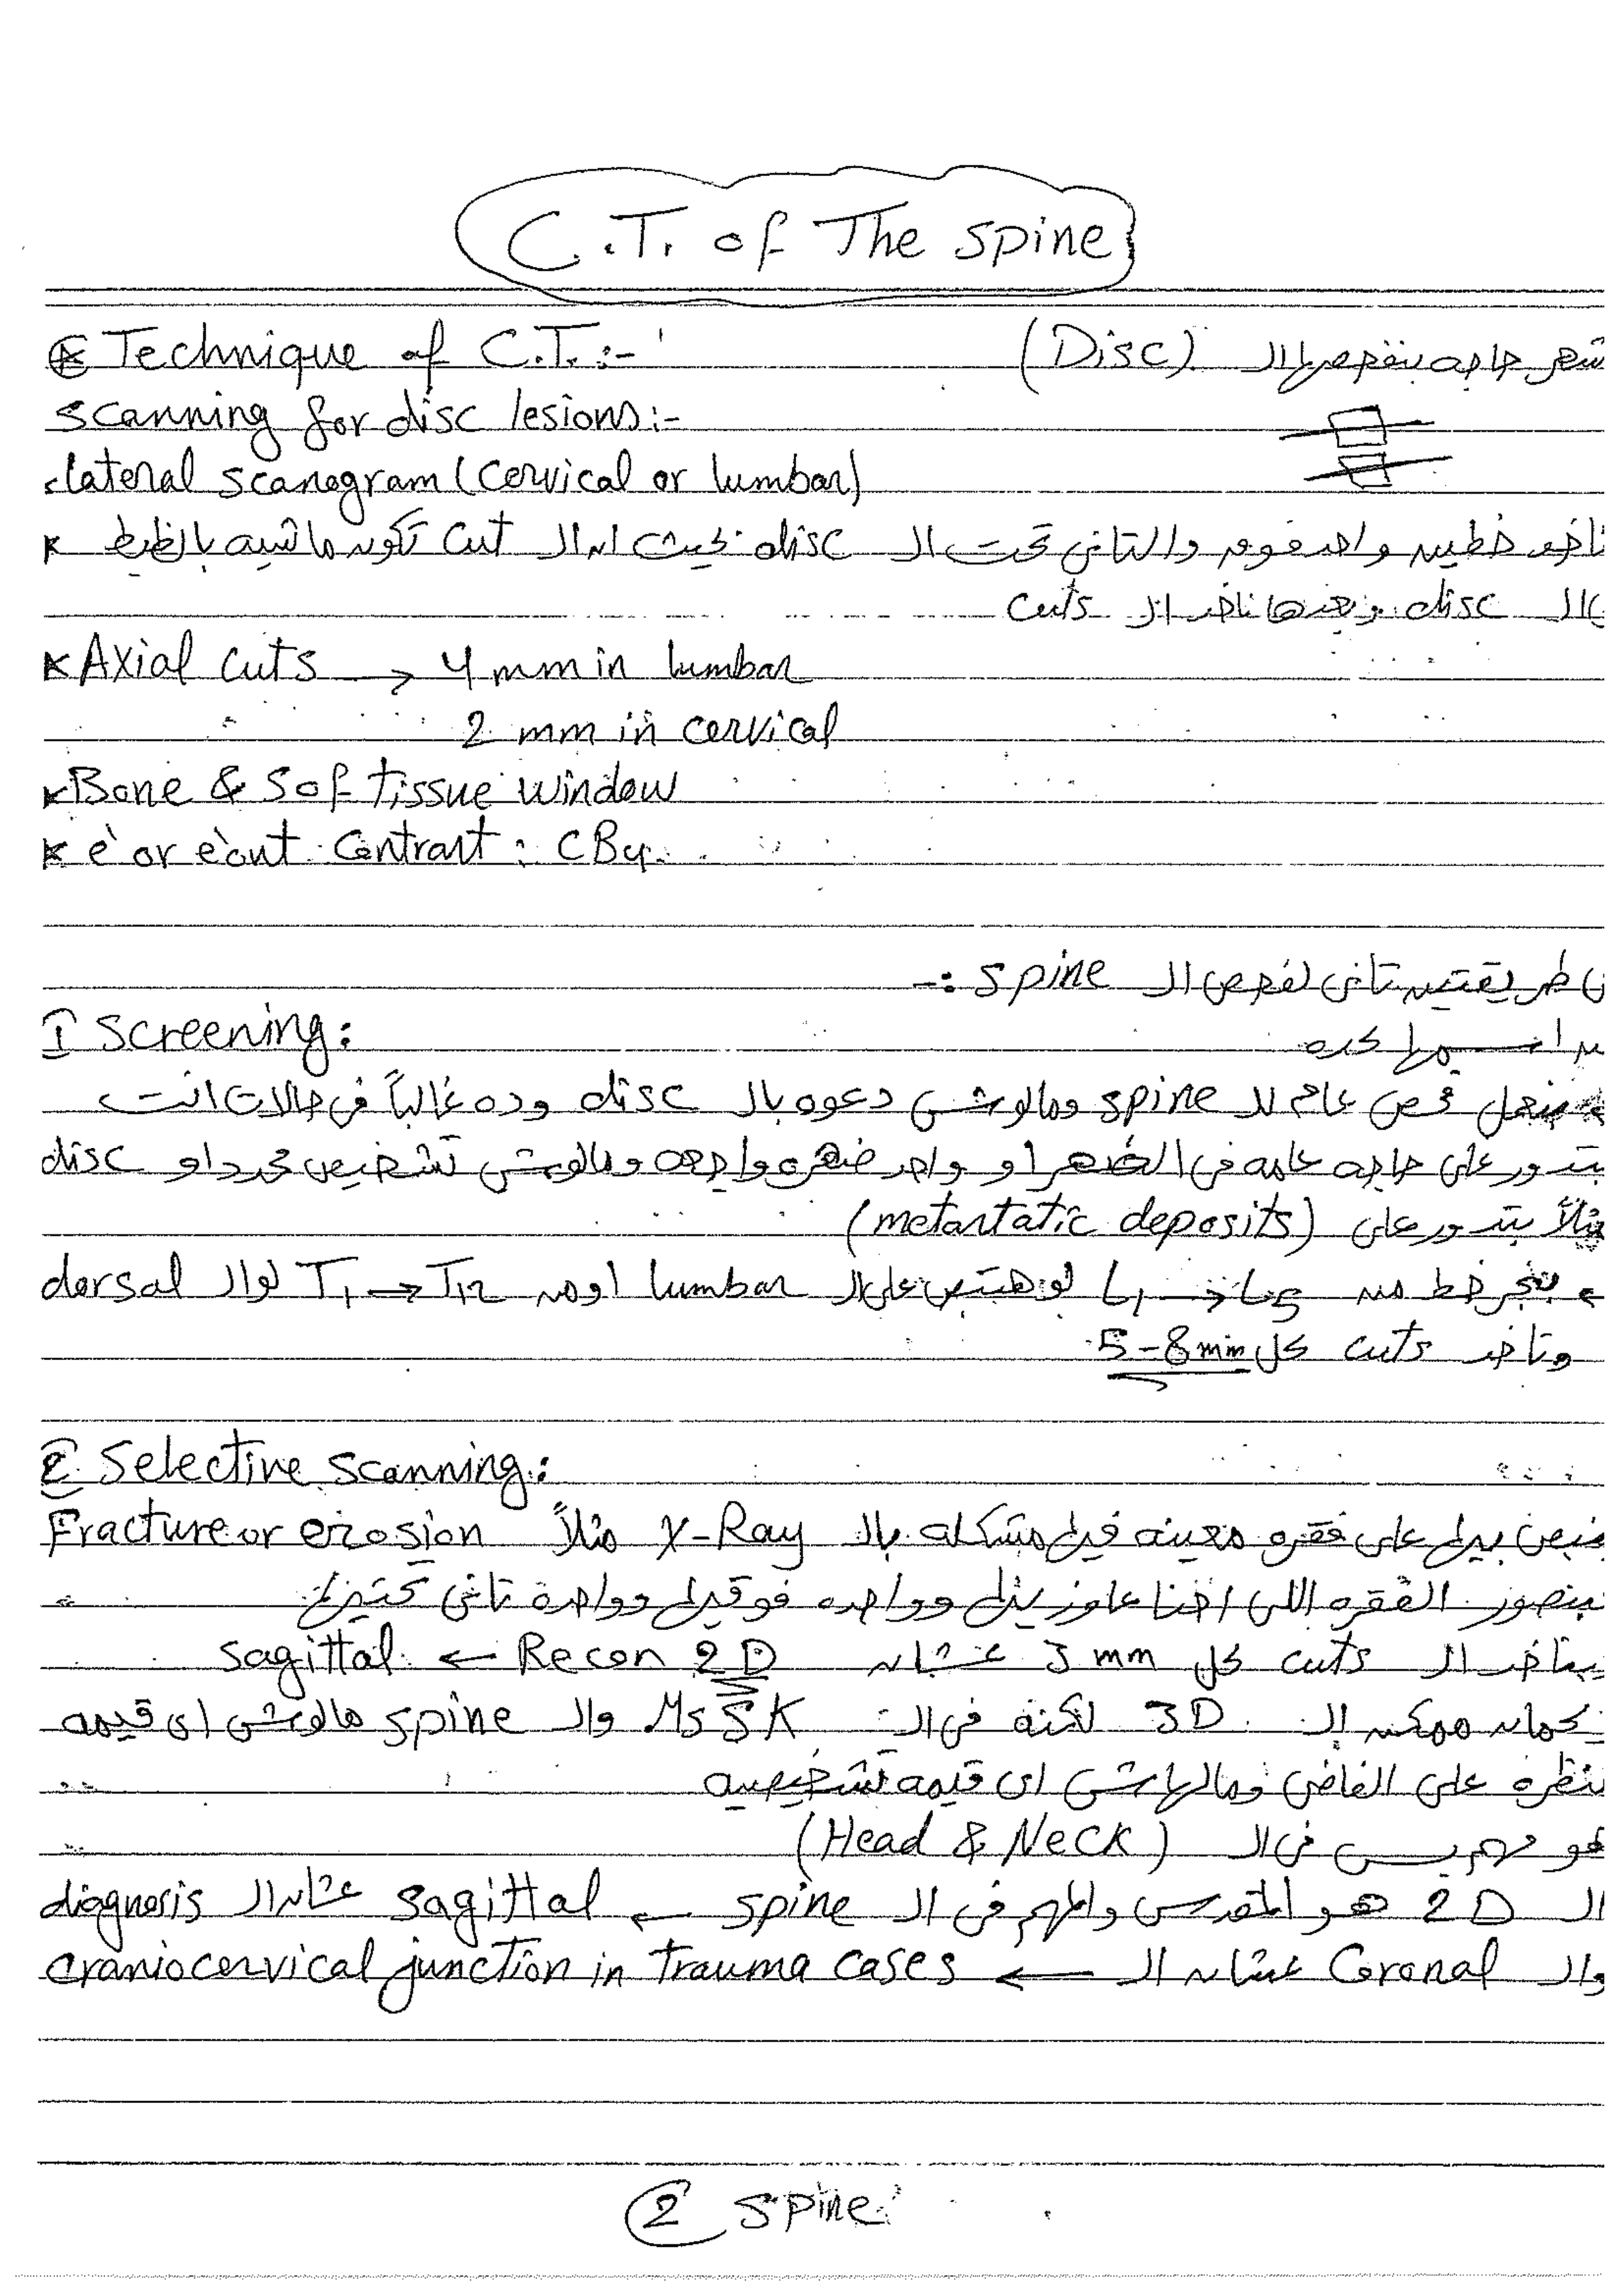 C.T. of The spine
Technique of C.T. :- حاجه بنفحصها الـ (Disc)
scanning for disc lesions :-
lateral scanogram (cervical or lumbar)
خطين واحد فوق والتاني تحت الـ disc بحيث ان الـ cut تكون ماشيه بالظبط
الـ disc وبعدها ناخد الـ cuts
Axial cuts → 4 mm in lumbar
2 mm in cervical
Bone & Sof tissue window
e or e'out contrast :
طريقتين تاني لفحص الـ spine :-
1 Screening :
اسمها كده
فحص عام للـ spine ومالوش دعوه بالـ disc وده غالباً في حالات انت
بتدور على حاجه عامه في الضهر او واحد ضهره واجعه ومالوش تشخيص محدد او disc
مثلاً بتدور على (metastatic deposits)
خط من L1 → L5 لو هتبص على الـ lumbar او من T1 → T12 لو الـ dorsal
وتاخد cuts كل 5-8 mm
2 Selective scanning :
على فقره معينه فيها مشكله بالـ X-Ray مثلاً Fracture or erosion
بنصور الفقره اللى احنا عاوزينها وواحده فوقيها وواحدة تانى تحتيها
بناخد الـ cuts كل 3 mm عشان Recon 2D ← sagittal
كمان ممكن الـ 3D لكنه في الـ MSSK والـ spine مالوش اى قيمه
منظره على الفاضى ومالهاش اى قيمه تشخيصيه
هو مهم بس فى الـ (Head & Neck)
الـ 2D هو المقدس والمهم فى الـ spine ← sagittal عشان الـ diagnosis
والـ Coronal عشان الـ ← craniocervical junction in trauma cases
2 spine